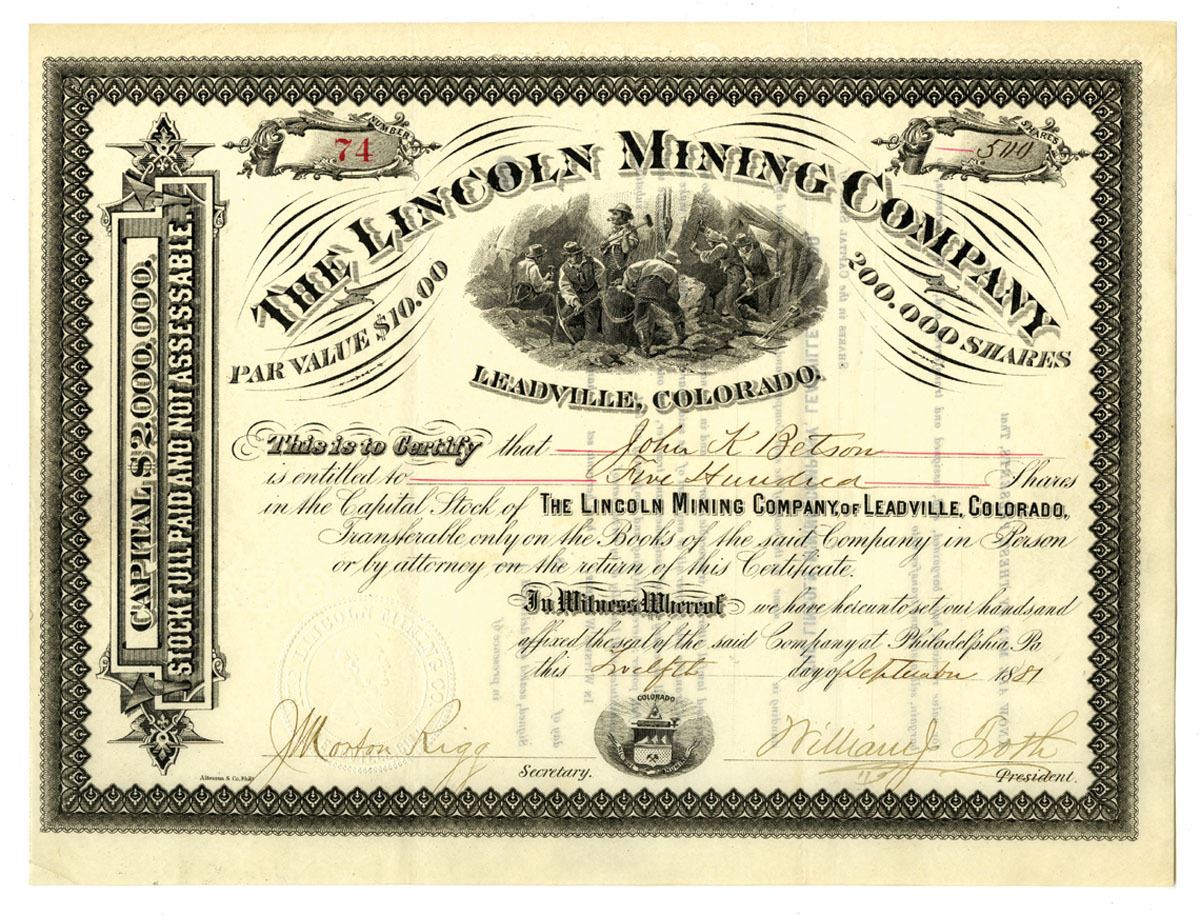 NUMBER
74
SHARES
500
THE LINCOLN MINING COMPANY
PAR VALUE $10.00
200.000 SHARES
LEADVILLE, COLORADO.
CAPITAL $2,000,000,
STOCK FULL PAID AND NOT ASSESSABLE.
This is to Certify that John K Betson
is entitled to Five Hundred Shares
in the Capital Stock of THE LINCOLN MINING COMPANY, OF LEADVILLE, COLORADO,
Transferable, only on the Books of the said Company in Person
or by attorney on the return of this Certificate.
In Witness Whereof we have hereunto set, our hands and
affixed the seal of the said Company at Philadelphia Pa
this Twelfth day of September 1881
COLORADO
J Morton Rigg
Secretary.
William J
President.
Altemus & Co. Phila
LINCOLN MINING CO.